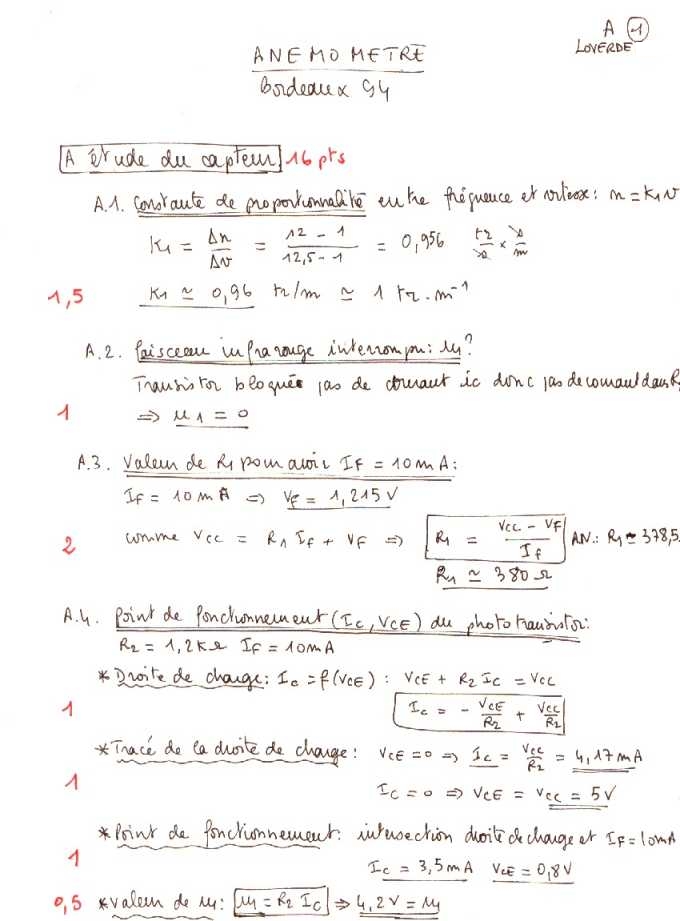 A 1
LOVERDE
ANEMOMETRE
Bordeaux 94
A étude du capteur 16 pts
A.1. Constante de proportionnalité entre fréquence et vitesse : n = K1 v
K1 = Δn/Δv = (12 - 1)/(12,5 - 1) = 0,956 tr/s × s/m
1,5 K1 ≃ 0,96 tr/m ≃ 1 tr.m⁻¹
A.2. faisceau infrarouge interrompu : u1 ?
Transistor bloqué pas de courant ic donc pas de courant dans R
1 ⇒ u1 = 0
A.3. Valeur de R1 pour avoir IF = 10 mA :
IF = 10 mA ⇒ VF = 1,215 V
2 comme VCC = R1 If + VF ⇒ R1 = (VCC - VF)/If A.N.: R1 ≃ 378,5
R1 ≃ 380 Ω
A.4. Point de fonctionnement (Ic, VCE) du phototransistor :
R2 = 1,2 kΩ IF = 10 mA
* Droite de charge : Ic = f(VCE) : VCE + R2 Ic = VCC
1 Ic = - VCE/R2 + VCC/R2
* Tracé de la droite de charge : VCE = 0 ⇒ Ic = VCC/R2 = 4,17 mA
1 Ic = 0 ⇒ VCE = VCC = 5 V
* Point de fonctionnement : intersection droite de charge et IF = 10 mA
1 Ic = 3,5 mA VCE = 0,8 V
0,5 * valeur de u1 : u1 = R2 Ic ⇒ 4,2 V = u1